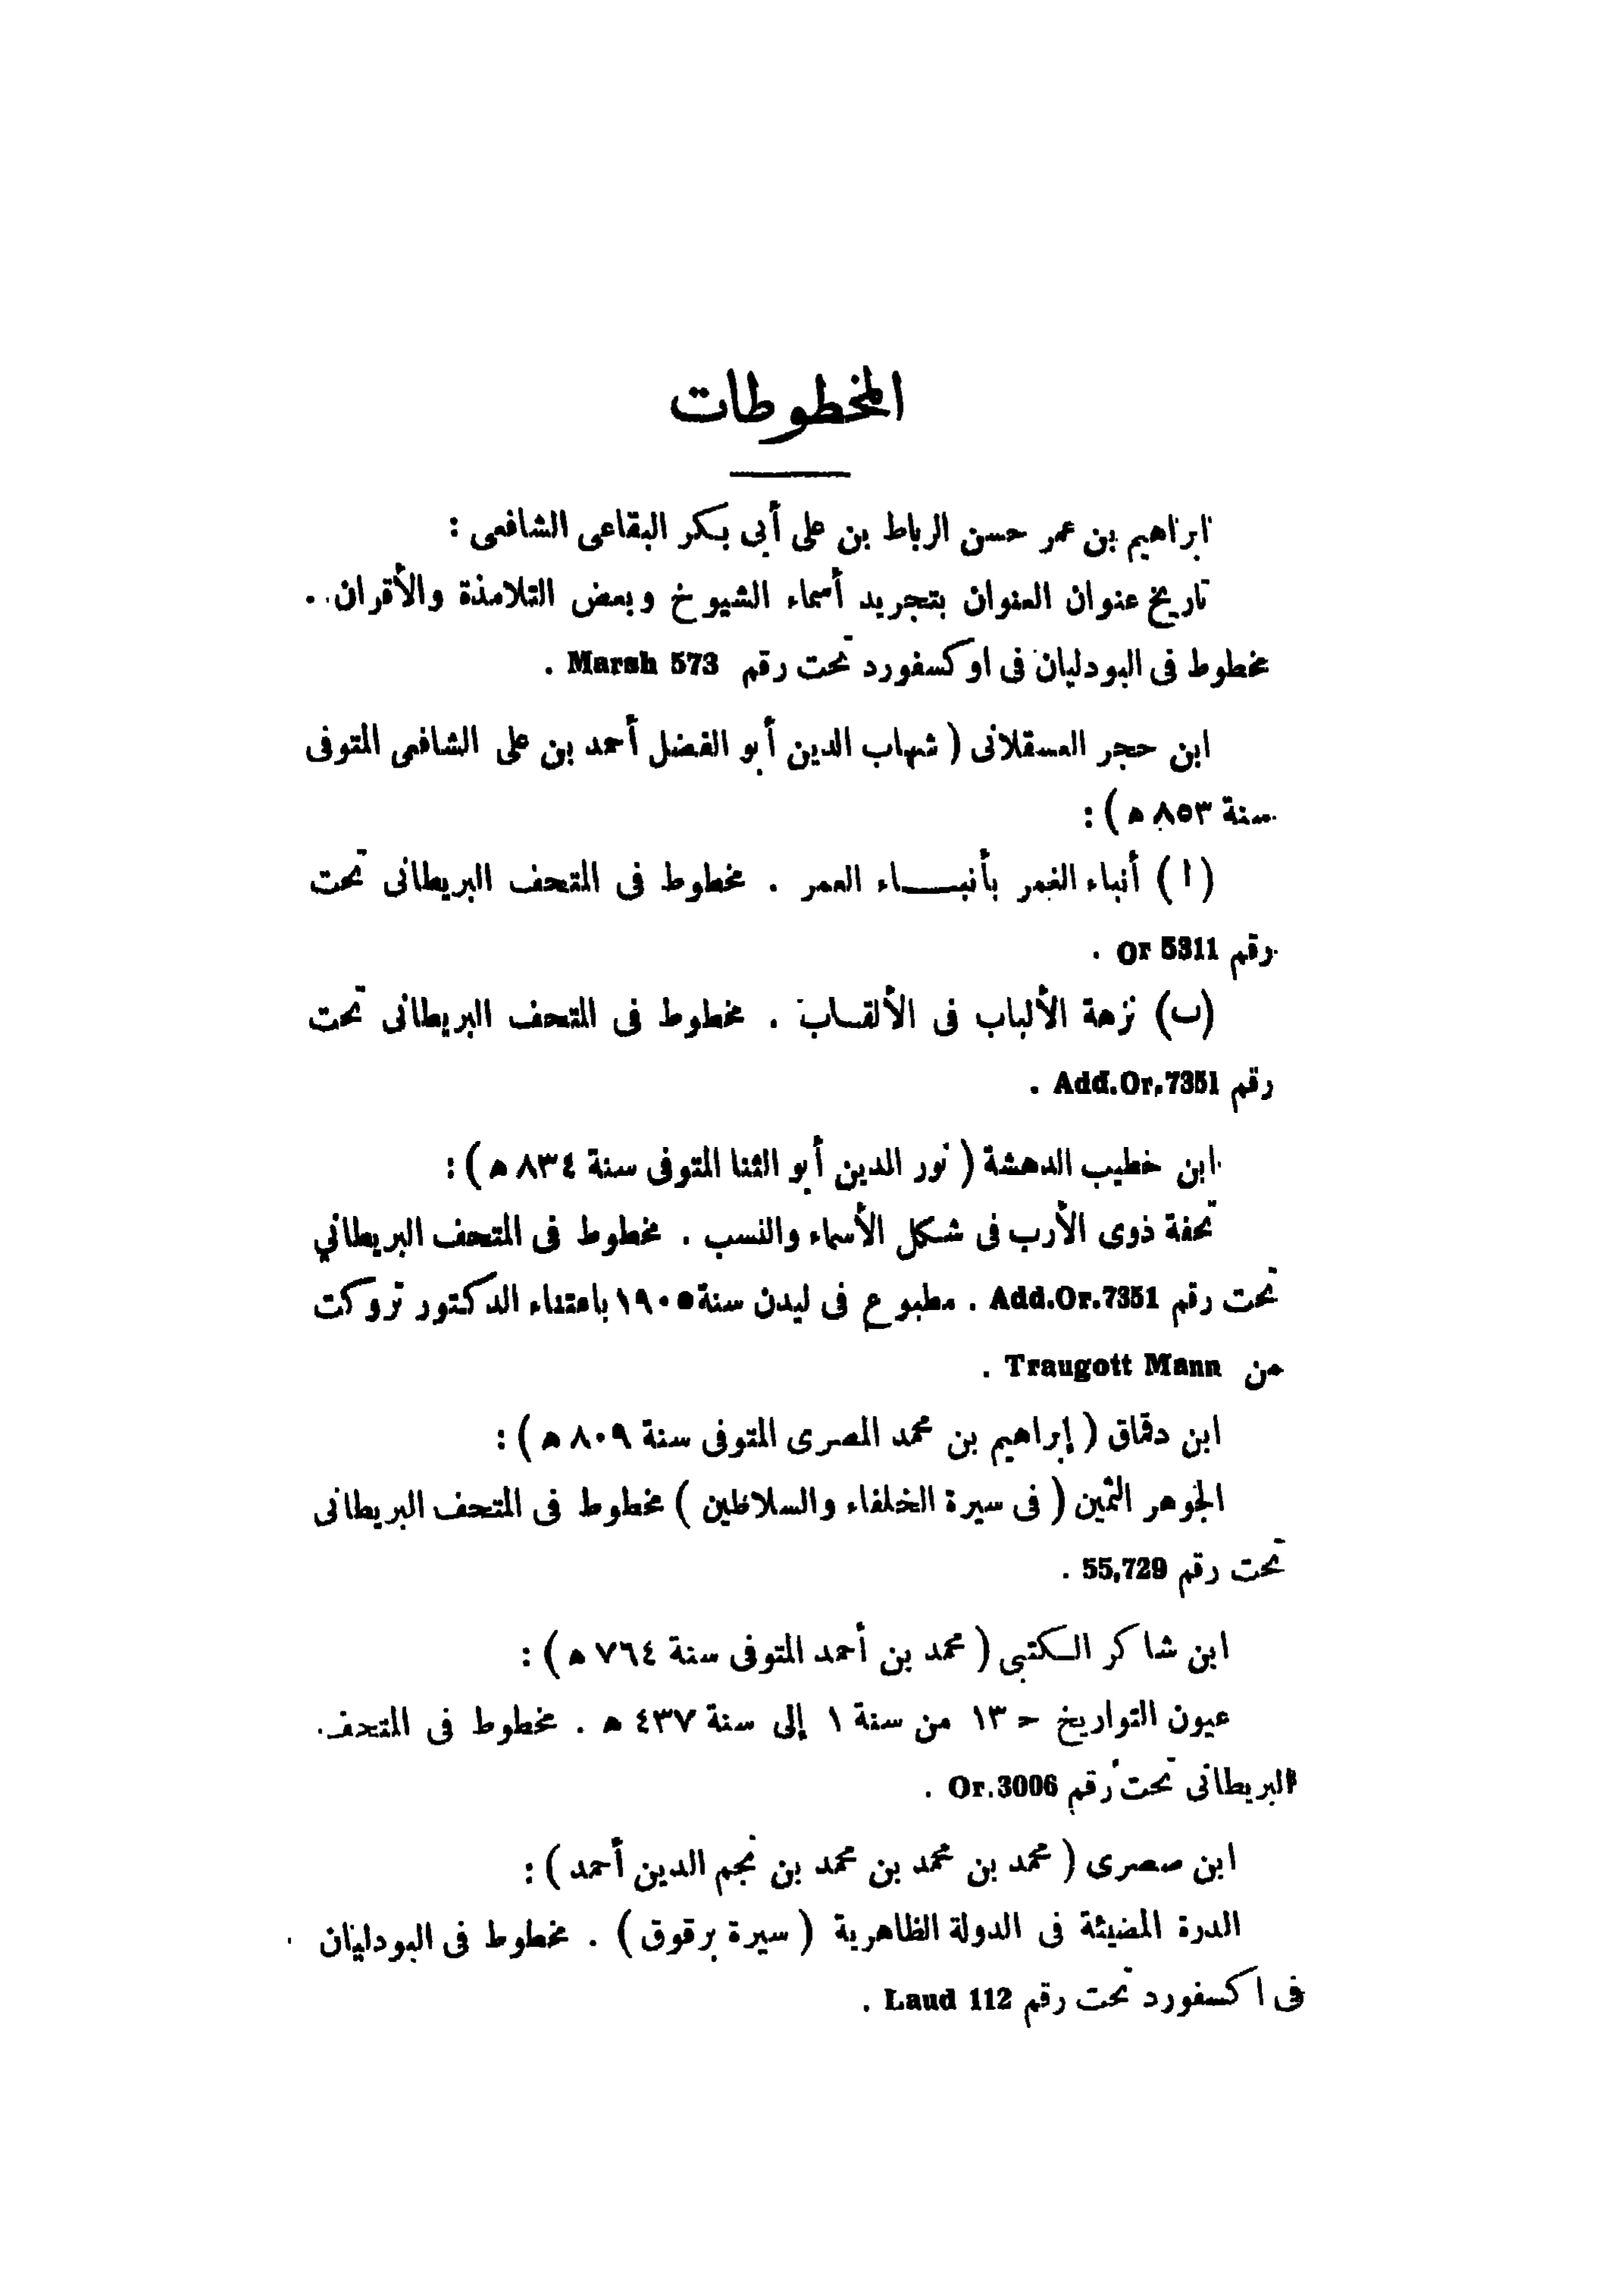 المخطوطات
ابراهيم بن عمر حسن الرباط بن على أبى بكر البقاعى الشافعى :
تاريخ عنوان العنوان بتجريد أسماء الشيوخ وبعض التلامذة والأقران .
مخطوط فى البودليان فى اوكسفورد تحت رقم Marsh 573 .
ابن حجر العسقلانى ( شهاب الدين أبو الفضل أحمد بن على الشافعى المتوفى
سنة ٨٥٣ ھ ) :
( ا ) أنباء الغمر بأنبـــاء العمر . مخطوط فى المتحف البريطانى تحت
رقم Or 5311 .
(ب) نزهة الألباب فى الألقاب . مخطوط فى المتحف البريطانى تحت
رقم Add.Or.7351 .
ابن خطيب الدهشة ( نور الدين أبو الثنا المتوفى سنة ٨٣٤ ھ ) :
تحفة ذوى الأرب فى شكل الأسماء والنسب . مخطوط فى المتحف البريطاني
تحت رقم Add.Or.7351 . مطبوع فى ليدن سنة ١٩٠٥ باعتناء الدكتور تروكت
من Traugott Mann .
ابن دقماق ( إبراهيم بن محمد المصرى المتوفى سنة ٨٠٩ ھ ) :
الجوهر الثمين ( فى سيرة الخلفاء والسلاطين ) مخطوط فى المتحف البريطانى
تحت رقم 55,729 .
ابن شاكر الكتبى ( محمد بن أحمد المتوفى سنة ٧٦٤ ھ ) :
عيون التواريخ ح ١٣ من سنة ١ إلى سنة ٤٣٧ ھ . مخطوط فى المتحف
البريطانى تحت رقم Or.3006 .
ابن صصرى ( محمد بن محمد بن محمد بن نجم الدين أحمد ) :
الدرة المضيئة فى الدولة الظاهرية ( سيرة برقوق ) . مخطوط فى البودليان
فى اكسفورد تحت رقم Laud 112 .